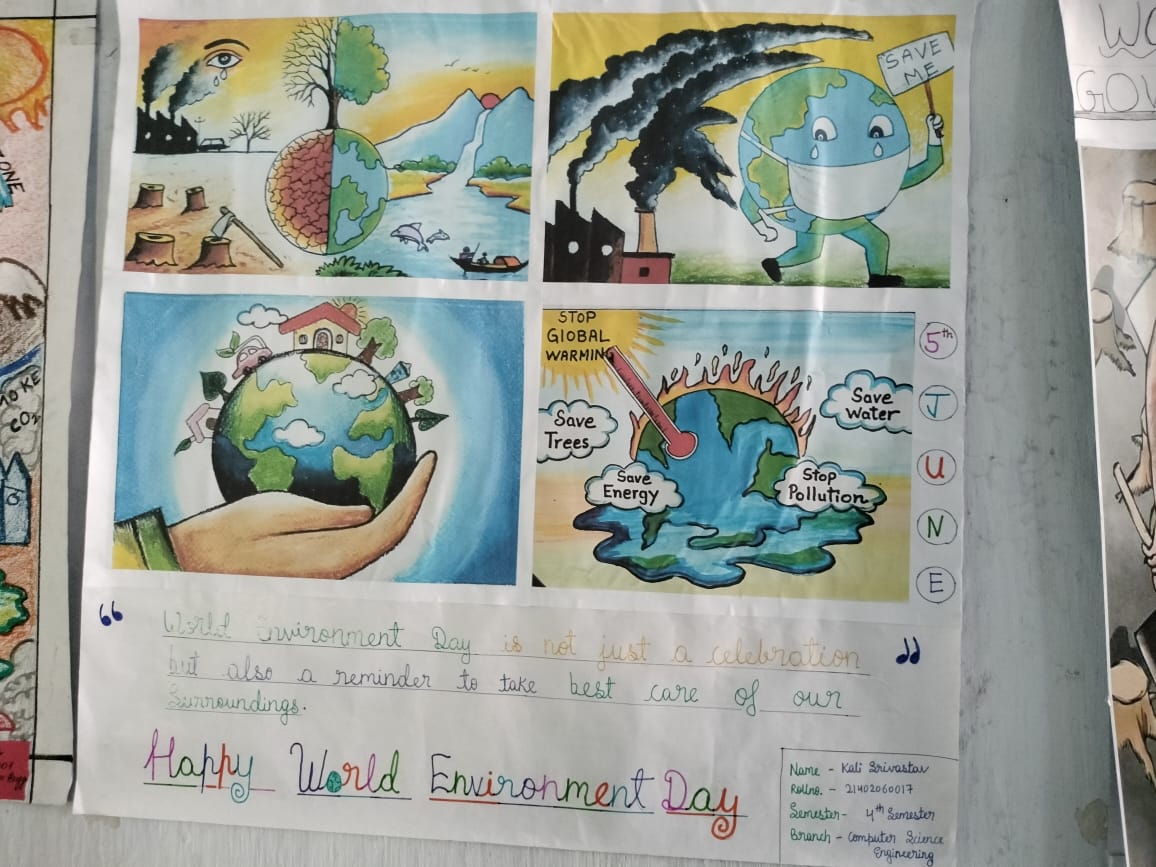 SAVE
ME
STOP
GlOBAL
WARMING
Save
Trees
Save
Water
Save
Energy
Stop
Pollution
5th
J
U
N
E
“ World Environment Day is not just a celebration ”
but also a reminder to take best care of our
Surroundings.
Happy World Environment Day
Name - Kali Srivastav
Rollno. - 21402060017
Semester- 4th Semester
Branch - Computer Science
Engineering
ONE
CO2